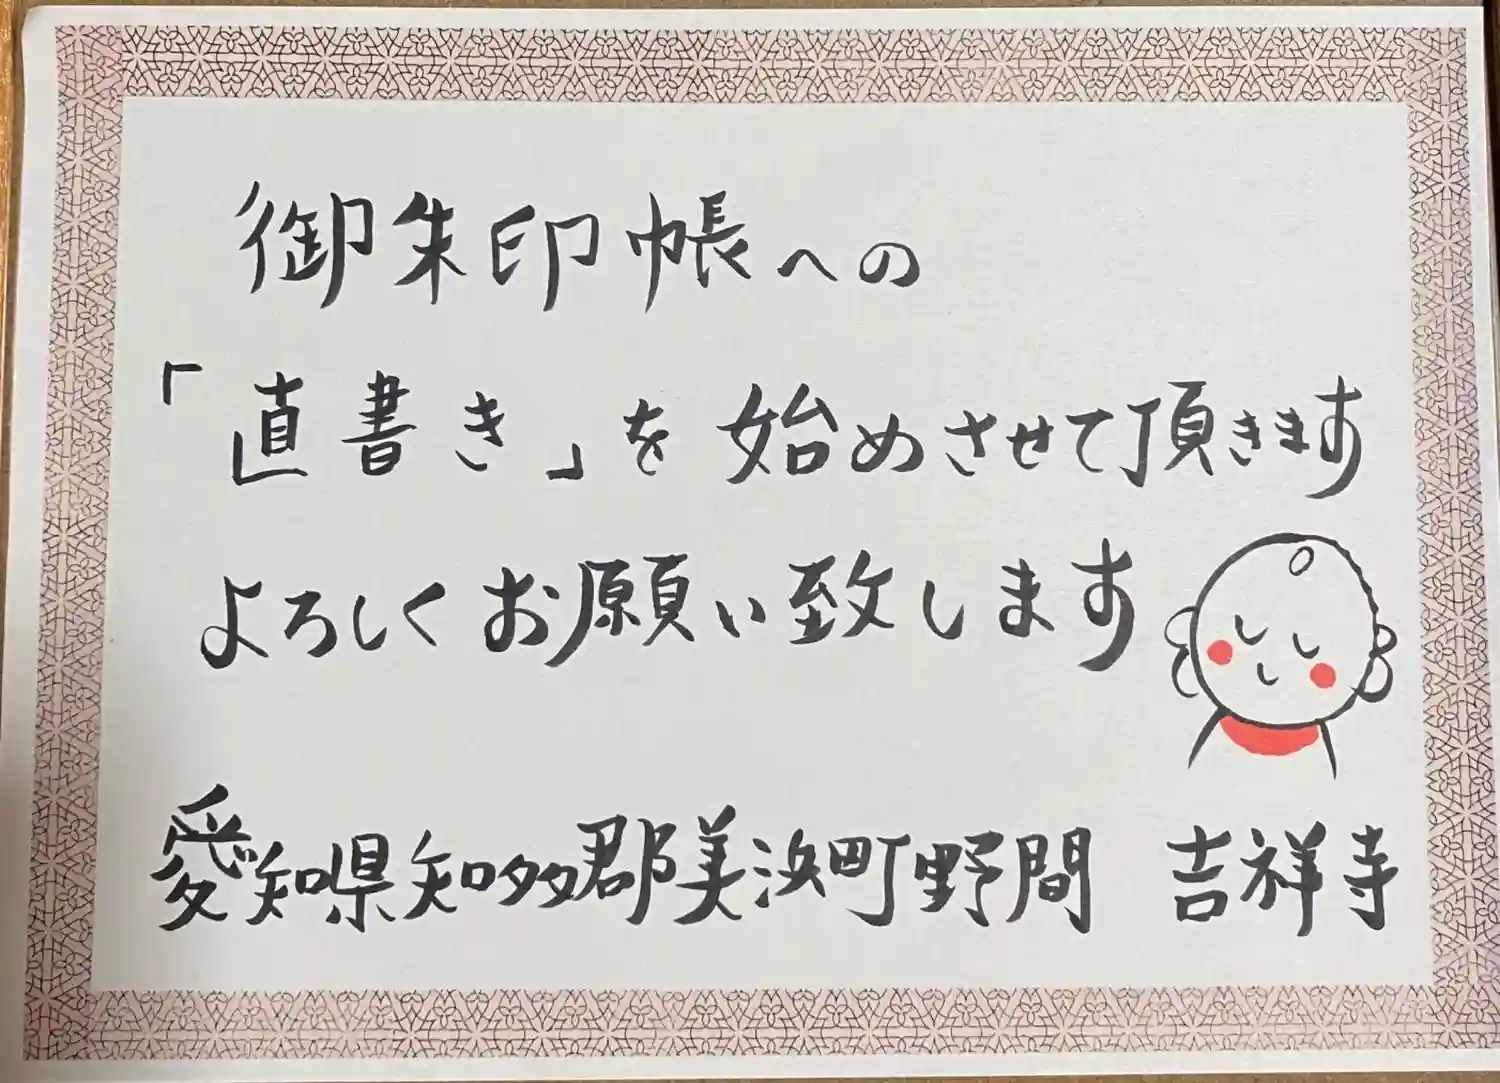 御朱印帳への
「直書き」を始めさせて頂きます
よろしくお願い致します
愛知県知多郡美浜町野間 吉祥寺